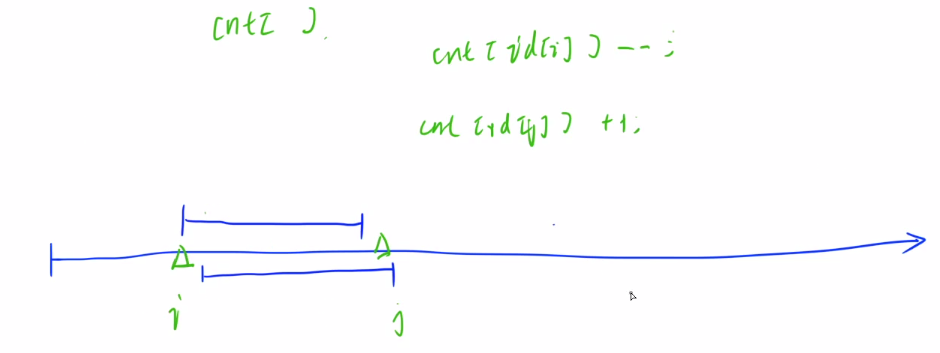 cnt[ ].
cnt[id[i]]--;
cnt[id[j]]++;
i
j